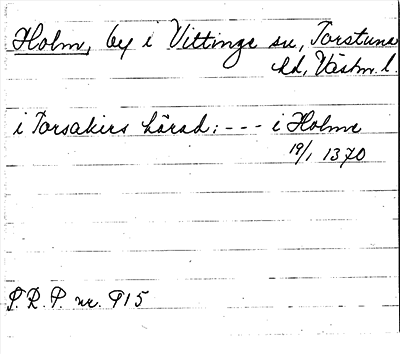 Holm, by i Vittinge sn, Torstuna
hd, Västm. l.
i Torsakirs härad: --- i Holme
19/1 1370
P.R.P. nr. 915